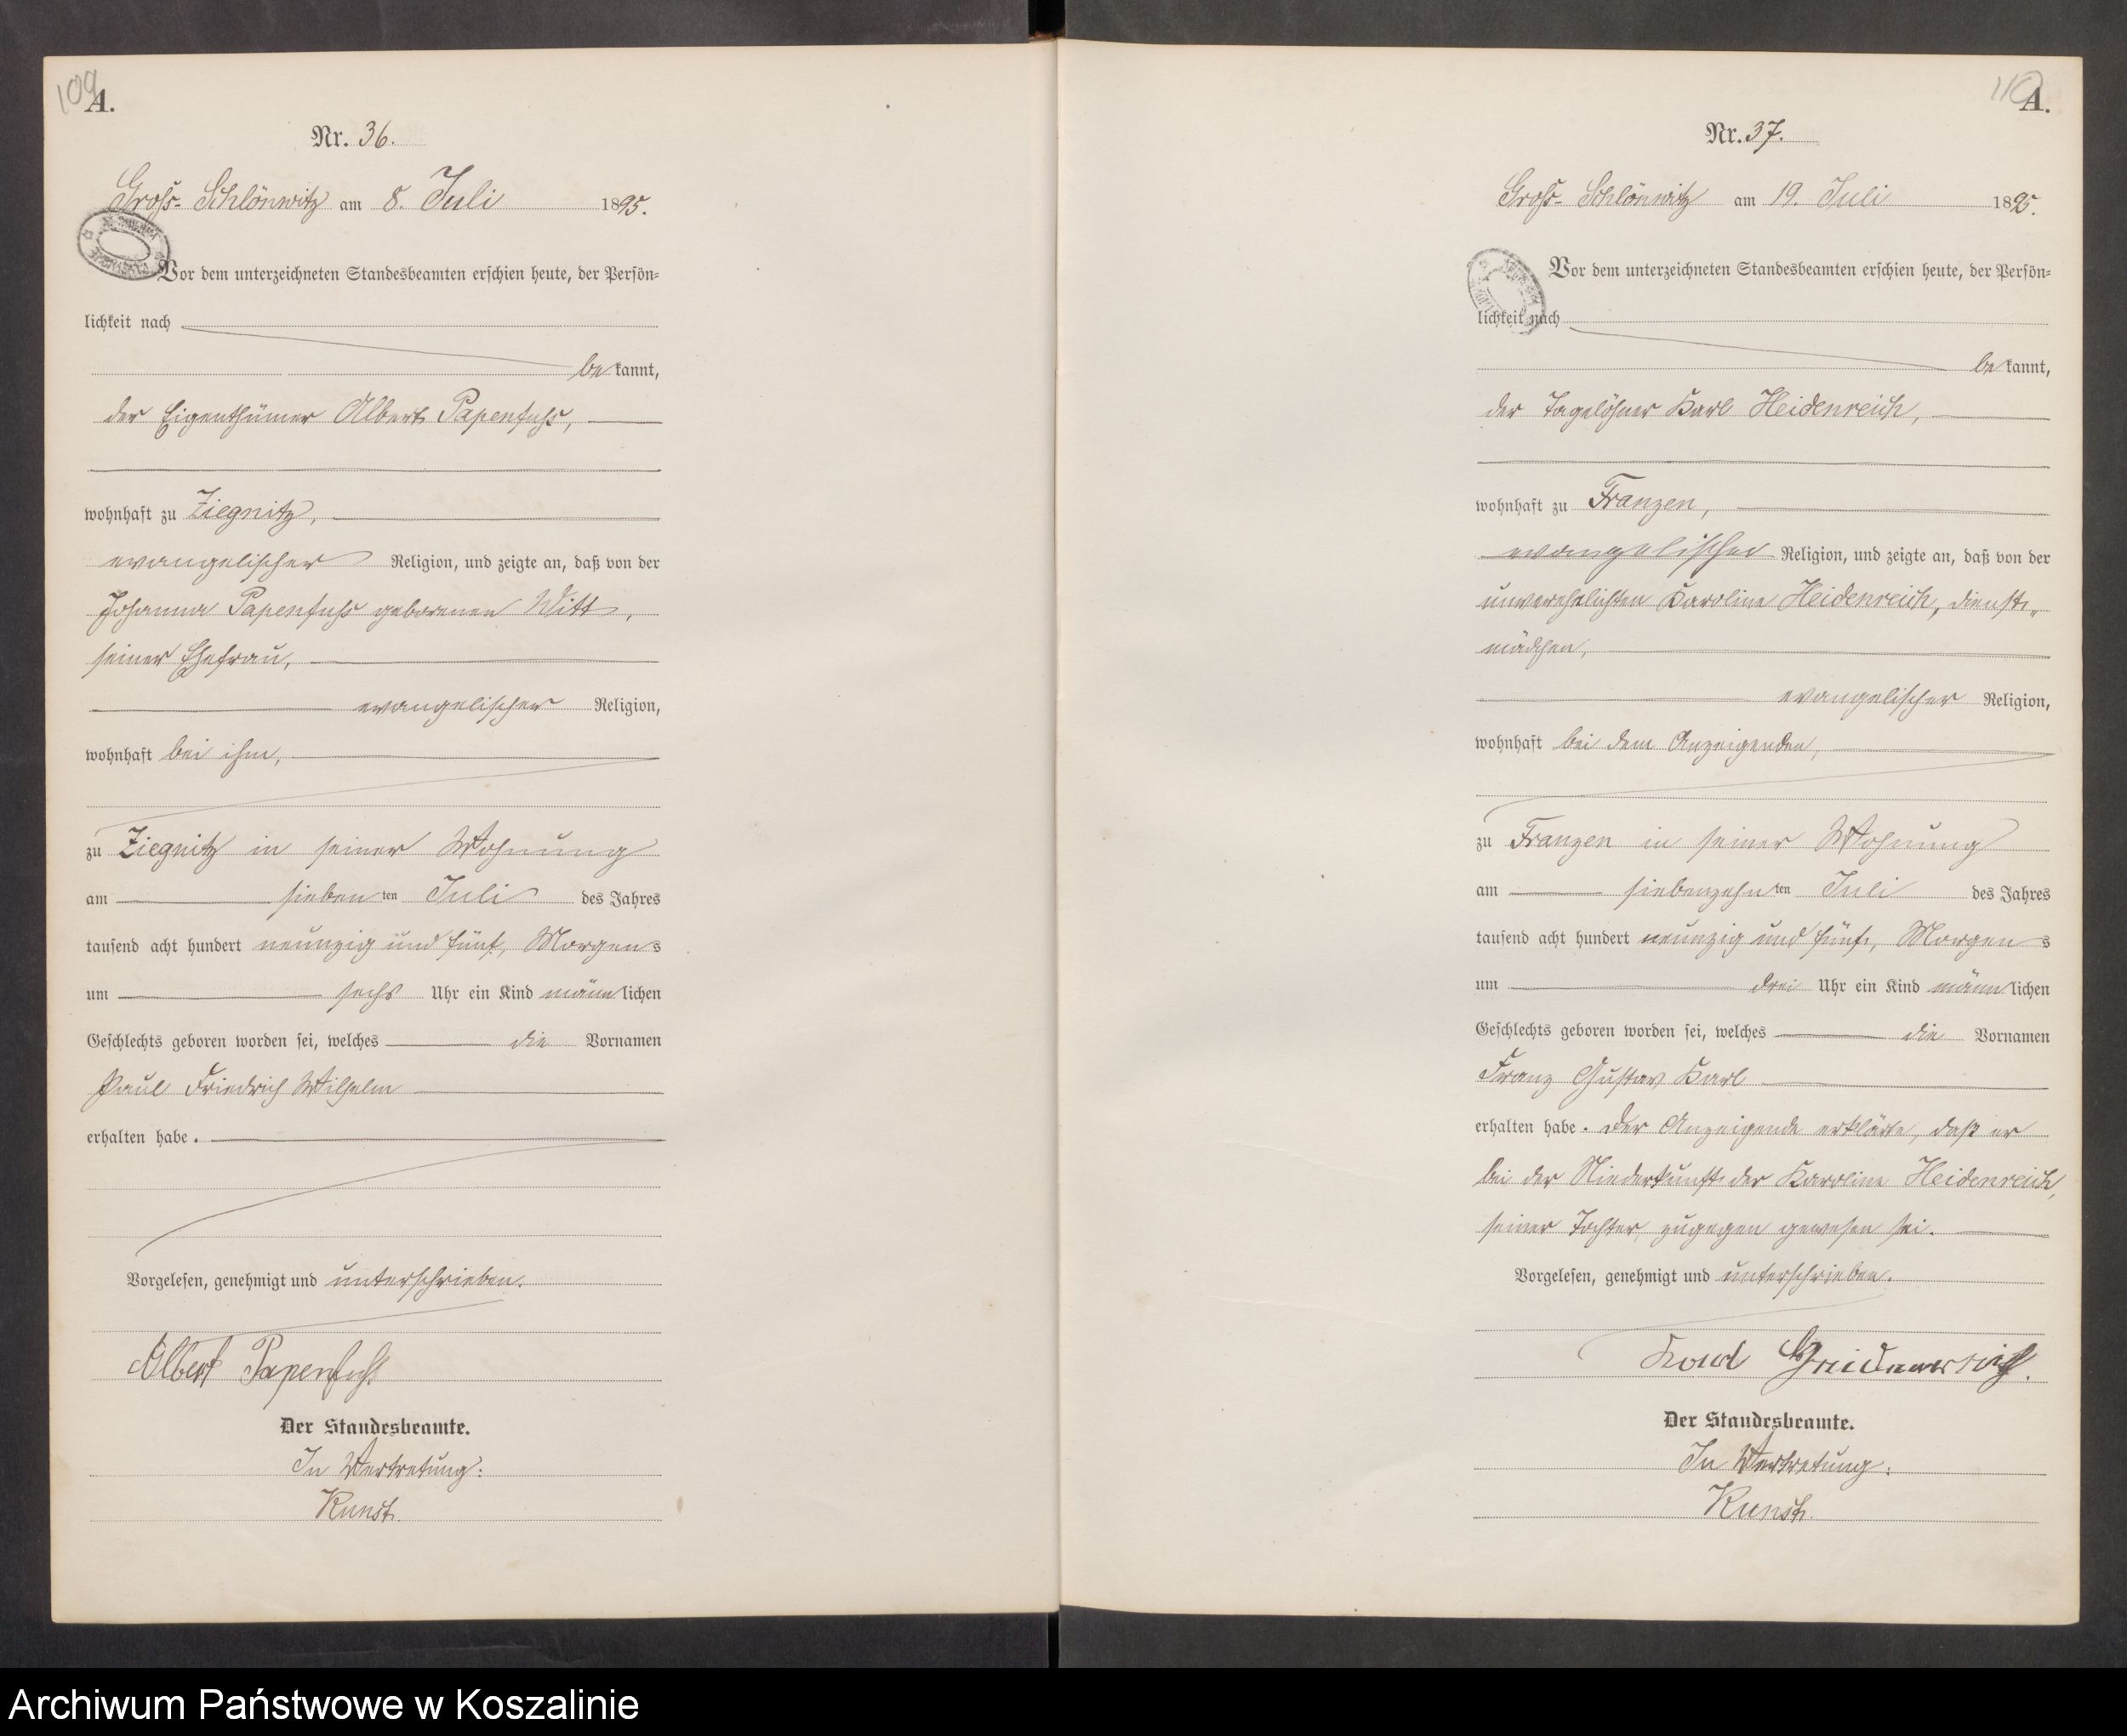 109
A.
Nr. 36.
Gross-Schlönwitz am 8. Juli 1895.
Vor dem unterzeichneten Standesbeamten erschien heute, der Persön-
lichkeit nach
bekannt,
der Eigenthümer Albert Papenfuhs,
wohnhaft zu Ziegnitz,
evangelischer Religion, und zeigte an, daß von der
Johanna Papenfuhs geborenen Witt,
seiner Ehefrau,
evangelischer Religion,
wohnhaft bei ihm,
zu Ziegnitz in seiner Wohnung
am siebenten Juli des Jahres
tausend acht hundert neunzig und fünf, Morgens
um sechs Uhr ein Kind männlichen
Geschlechts geboren worden sei, welches die Vornamen
Paul Friedrich Wilhelm
erhalten habe.
Vorgelesen, genehmigt und unterschrieben.
Albert Papenfuhs
Der Standesbeamte.
In Vertretung:
Kunst.
110
A.
Nr. 37.
Gross-Schlönwitz am 19. Juli 1895.
Vor dem unterzeichneten Standesbeamten erschien heute, der Persön-
lichkeit nach
bekannt,
der Tagelöhner Karl Heidenreich,
wohnhaft zu Franzen,
evangelischer Religion, und zeigte an, daß von der
unverehelichten Karoline Heidenreich, Dienst-
mädchen,
evangelischer Religion,
wohnhaft bei dem Anzeigenden,
zu Franzen in seiner Wohnung
am siebenzehnten Juli des Jahres
tausend acht hundert neunzig und fünf, Morgens
um drei Uhr ein Kind männlichen
Geschlechts geboren worden sei, welches die Vornamen
Franz Gustav Karl
erhalten habe. Der Anzeigende erklärte, daß er
bei der Niederkunft der Karoline Heidenreich,
seiner Tochter, zugegen gewesen sei.
Vorgelesen, genehmigt und unterschrieben.
Karl Heidenreich.
Der Standesbeamte.
In Vertretung:
Kunst.
Archiwum Państwowe w Koszalinie